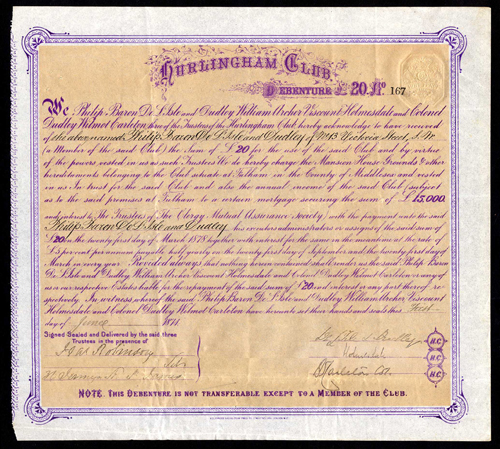 HURLINGHAM CLUB.
DEBENTURE £20. No 167
We Philip Baron De L'Isle and Dudley William Archer Viscount Holmesdale and Colonel
Dudley Wilmot Carleton three of the Trustees of the Hurlingham Club hereby acknowledge to have received
of the abovenamed Philip Baron De L'Isle and Dudley of
(a Member of the said Club) the Sum of £20 for the use of the said Club and by virtue
of the powers vested in us as such Trustees We do hereby charge the Mansion House Grounds &other
hereditaments belonging to the Club situate at Fulham in the County of Middlesex and vested
in us In trust for the said Club and also the annual income of the said Club (subject
as to the said premises at Fulham to a certain mortgage securing the sum of £15,000
and interest to the Trustees of The Clergy Mutual Assurance Society) with the payment unto the said
Philip Baron De L'Isle and Dudley his executors administrators or assigns of the said sum of
£20 on the twenty first day of March 1878 together with interest for the same in the meantime at the rate of
£5 per cent per annum payable half yearly on the twenty first day of September and the twenty first day of
March in every year. Provided always that nothing herein contained shall render us the said Philip Baron
De L'Isle and Dudley William Archer Viscount Holmesdale and Colonel Dudley Wilmot Carleton or any of
us or our respective Estates liable for the repayment of the said sum of £20 and interest or any part thereof re-
spectively. In witness whereof the said Philip Baron De L'Isle and Dudley William Archer Viscount
Holmesdale and Colonel Dudley Wilmot Carleton have hereunto set their hands and seals this First
day of June 1877.
Signed Sealed and Delivered by the said three
Trustees in the presence of
De L'Isle & Dudley
Holmesdale
D Carleton Col.
H.C.
H.C.
H.C.
NOTE. THIS DEBENTURE IS NOT TRANSFERABLE EXCEPT TO A MEMBER OF THE CLUB.